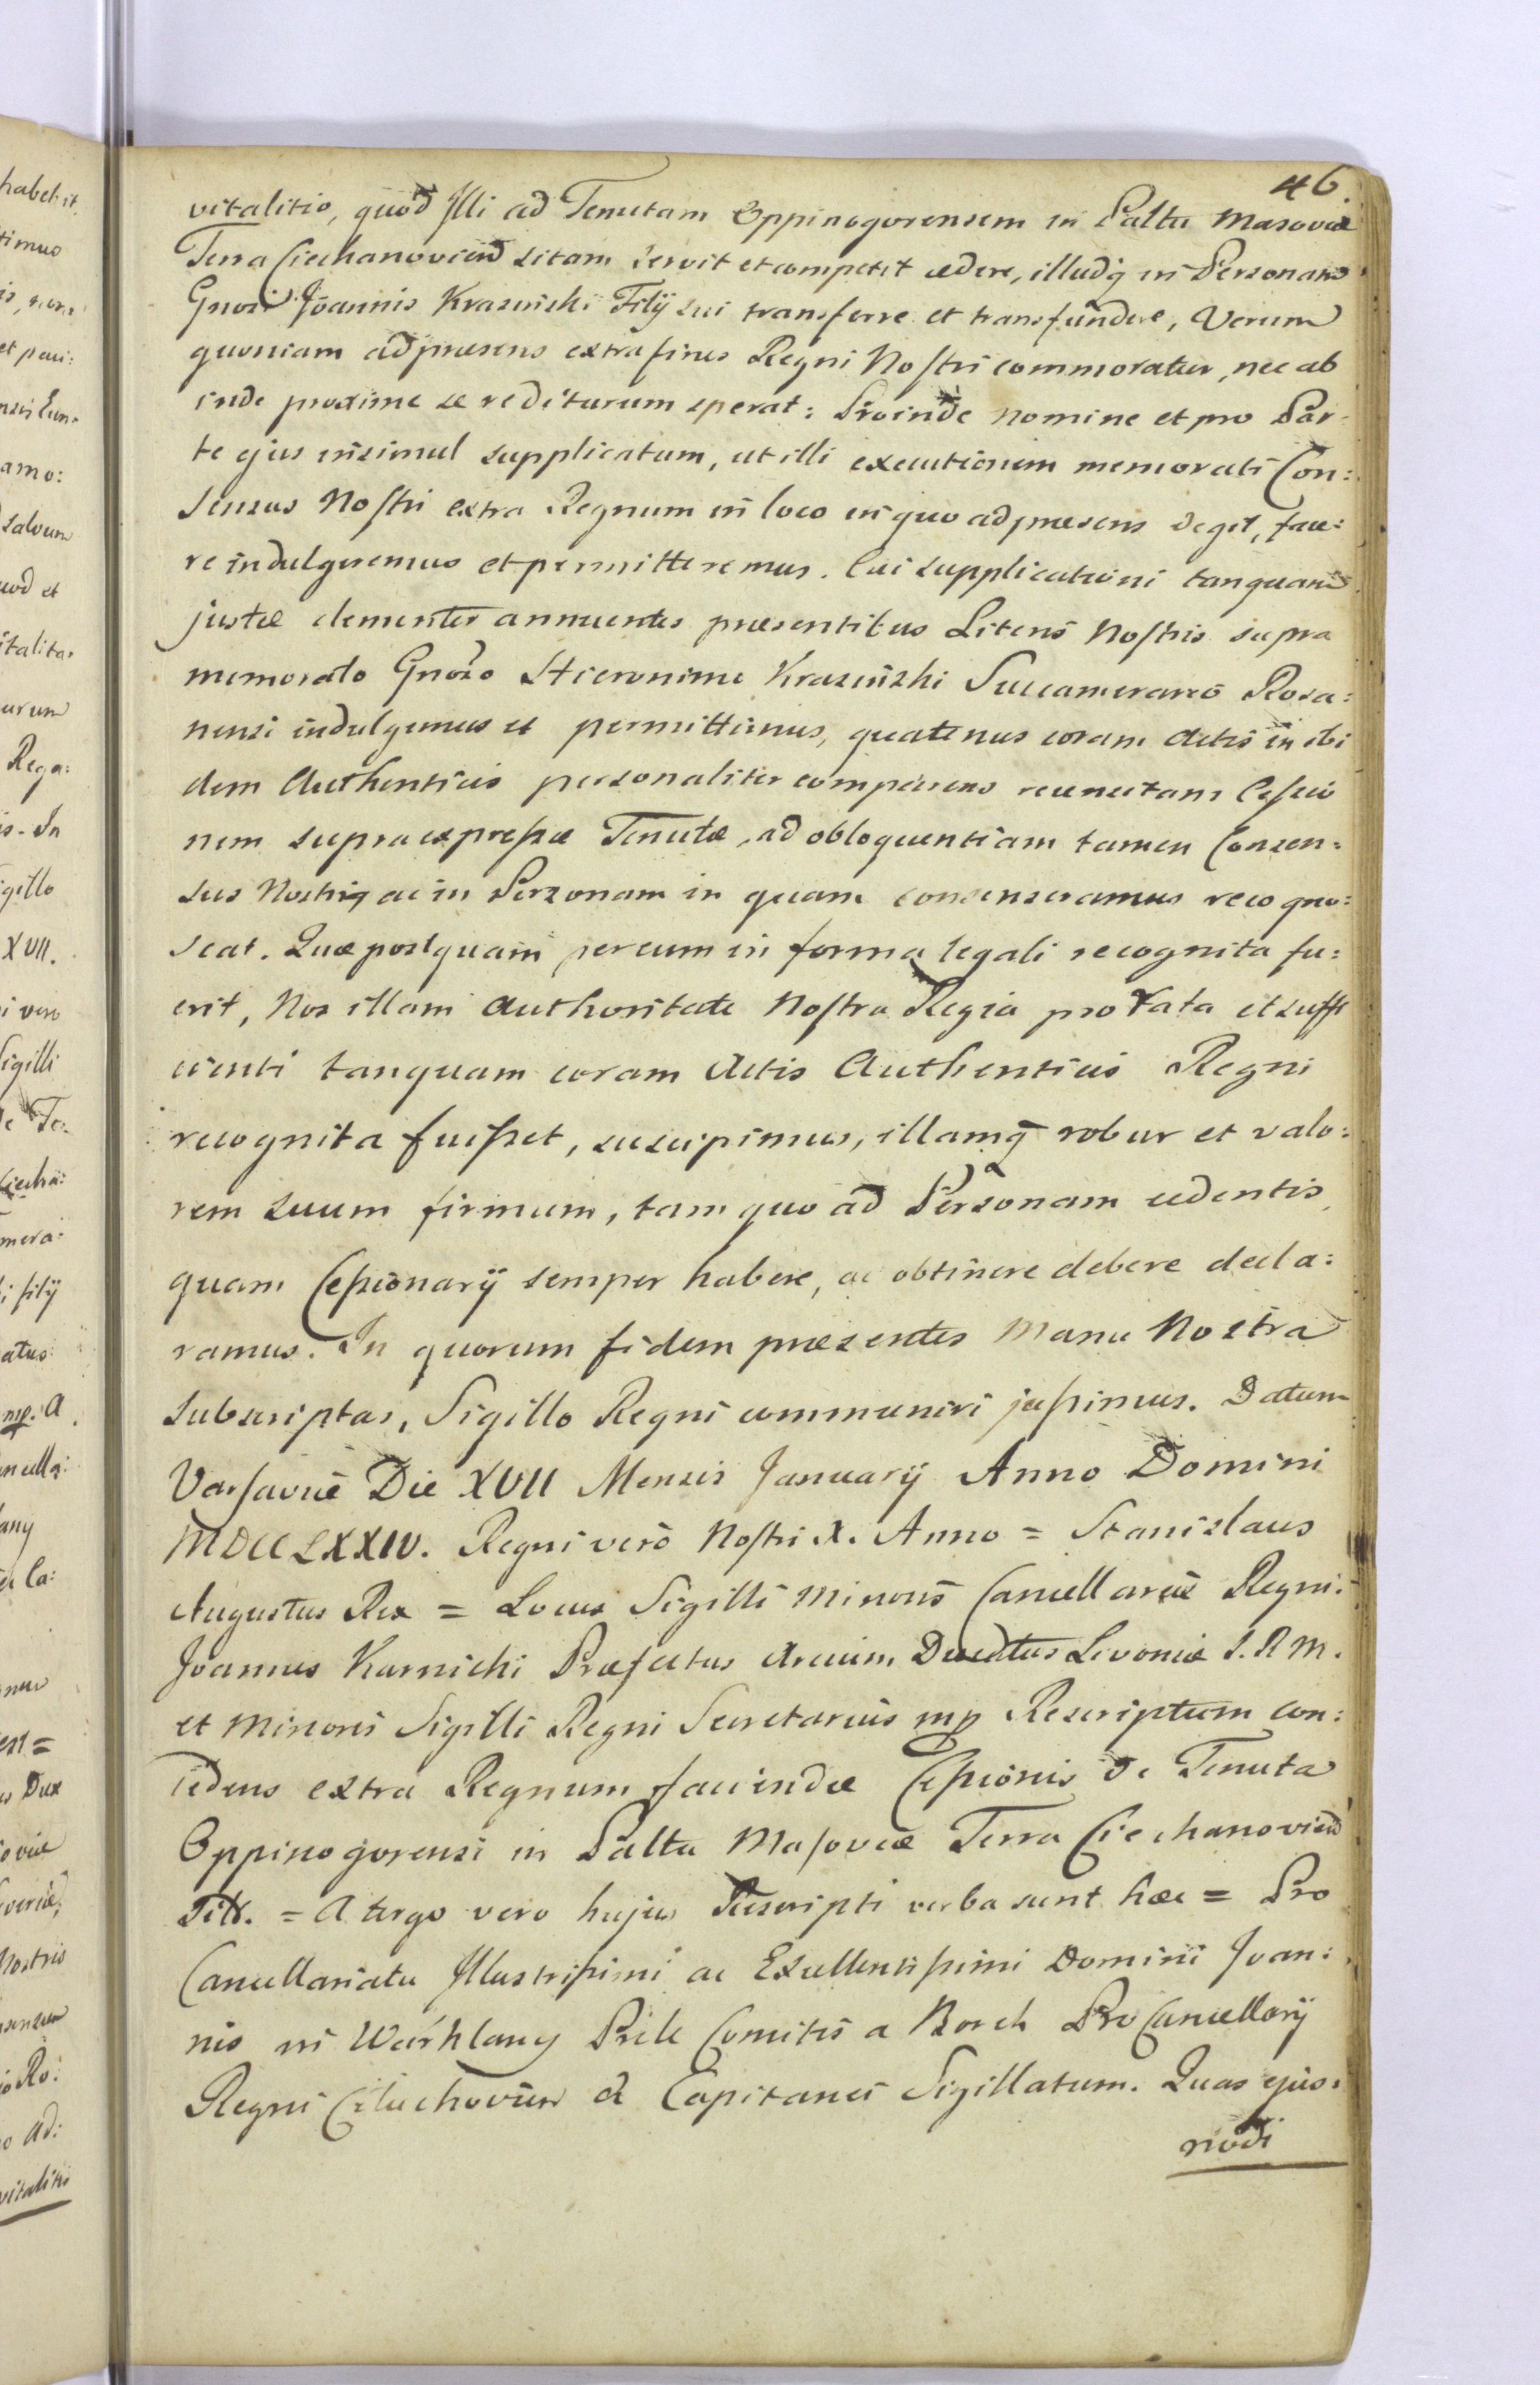 46.
vitalitio, quod Illi ad Tenutam Oppinogorensem in Pałtu Masoviæ
Terra Ciechanovien sitam servit et competit cedere, illudq in Personam
Gnosi Joannis Krasinski Filij sui transferre et transfundere, Verum
quoniam ad præsens extra fines Regni Nostri commoratur, nec ab
inde proxime se rediturum sperat: Proinde nomine et pro Par-
te ejus insimul supplicatum, ut illi executionem memorati Con:
sensus Nostri extra Regnum in loco in quo ad præsens degit, face:
re indulgeremus et permitteremus. Cui supplicationi tanquam
justæ clementer annuentes præsentibus Literis Nostris supra
memorato Gnoso Hieronimo Krasinski Succamerario Rosa:
nensi indulgemus et permittimus, quatenus coram Actis in ibi
dem Authenticis personaliter comparens nenutam Cessio
nem supra expressæ Tenutæ, ad obloquentiam tamen Consen:
sus Nostri, ac in Personam in quam consenseramus recogno:
scat. Quæ postquam per eum in forma legali recognita fu:
erit, Nos illam Authoritate Nostra Regia pro rata et suffi
cienti tanquam coram Actis Authenticis Regni
recognita fuisset, suscipimus, illamq robur et valo:
rem suum firmum, tam quo ad Personam cedentis,
quam Cessionarij semper habere, ac obtinere debere decla:
ramus. In quorum fidem præsentes Manu Nostra
subscriptas, Sigillo Regni communiri jussimus. Datum
Varsaviæ Die XVII Mensis Januarij Anno Domini
MDCCLXXIV. Regni vero Nostri X. Anno = Stanislaus
Augustus Rex = Locus Sigilli Minoris Cancellariæ Regni.
Joannes Karnicki Præfectus Arcium Ducatus Livoniæ S. R M.
et Minoris Sigilli Regni Secretarius mp Rescriptum con:
cedens extra Regnum faciendæ Cessionis de Tenuta
Oppinogorensi in Pałtu Masoviæ Terra Ciechanovien
Sitt. = A tergo vero hujus Rescripti verba sunt hæc = Pro
Cancellariatu Illustrissimi ac Excellentissimi Domini Joan:
nis in Warklany Prele Comitis a Borch Pro Cancellarij
Regni Człuchovien & Capitanei Sigillatum. Quas ejus:
modi